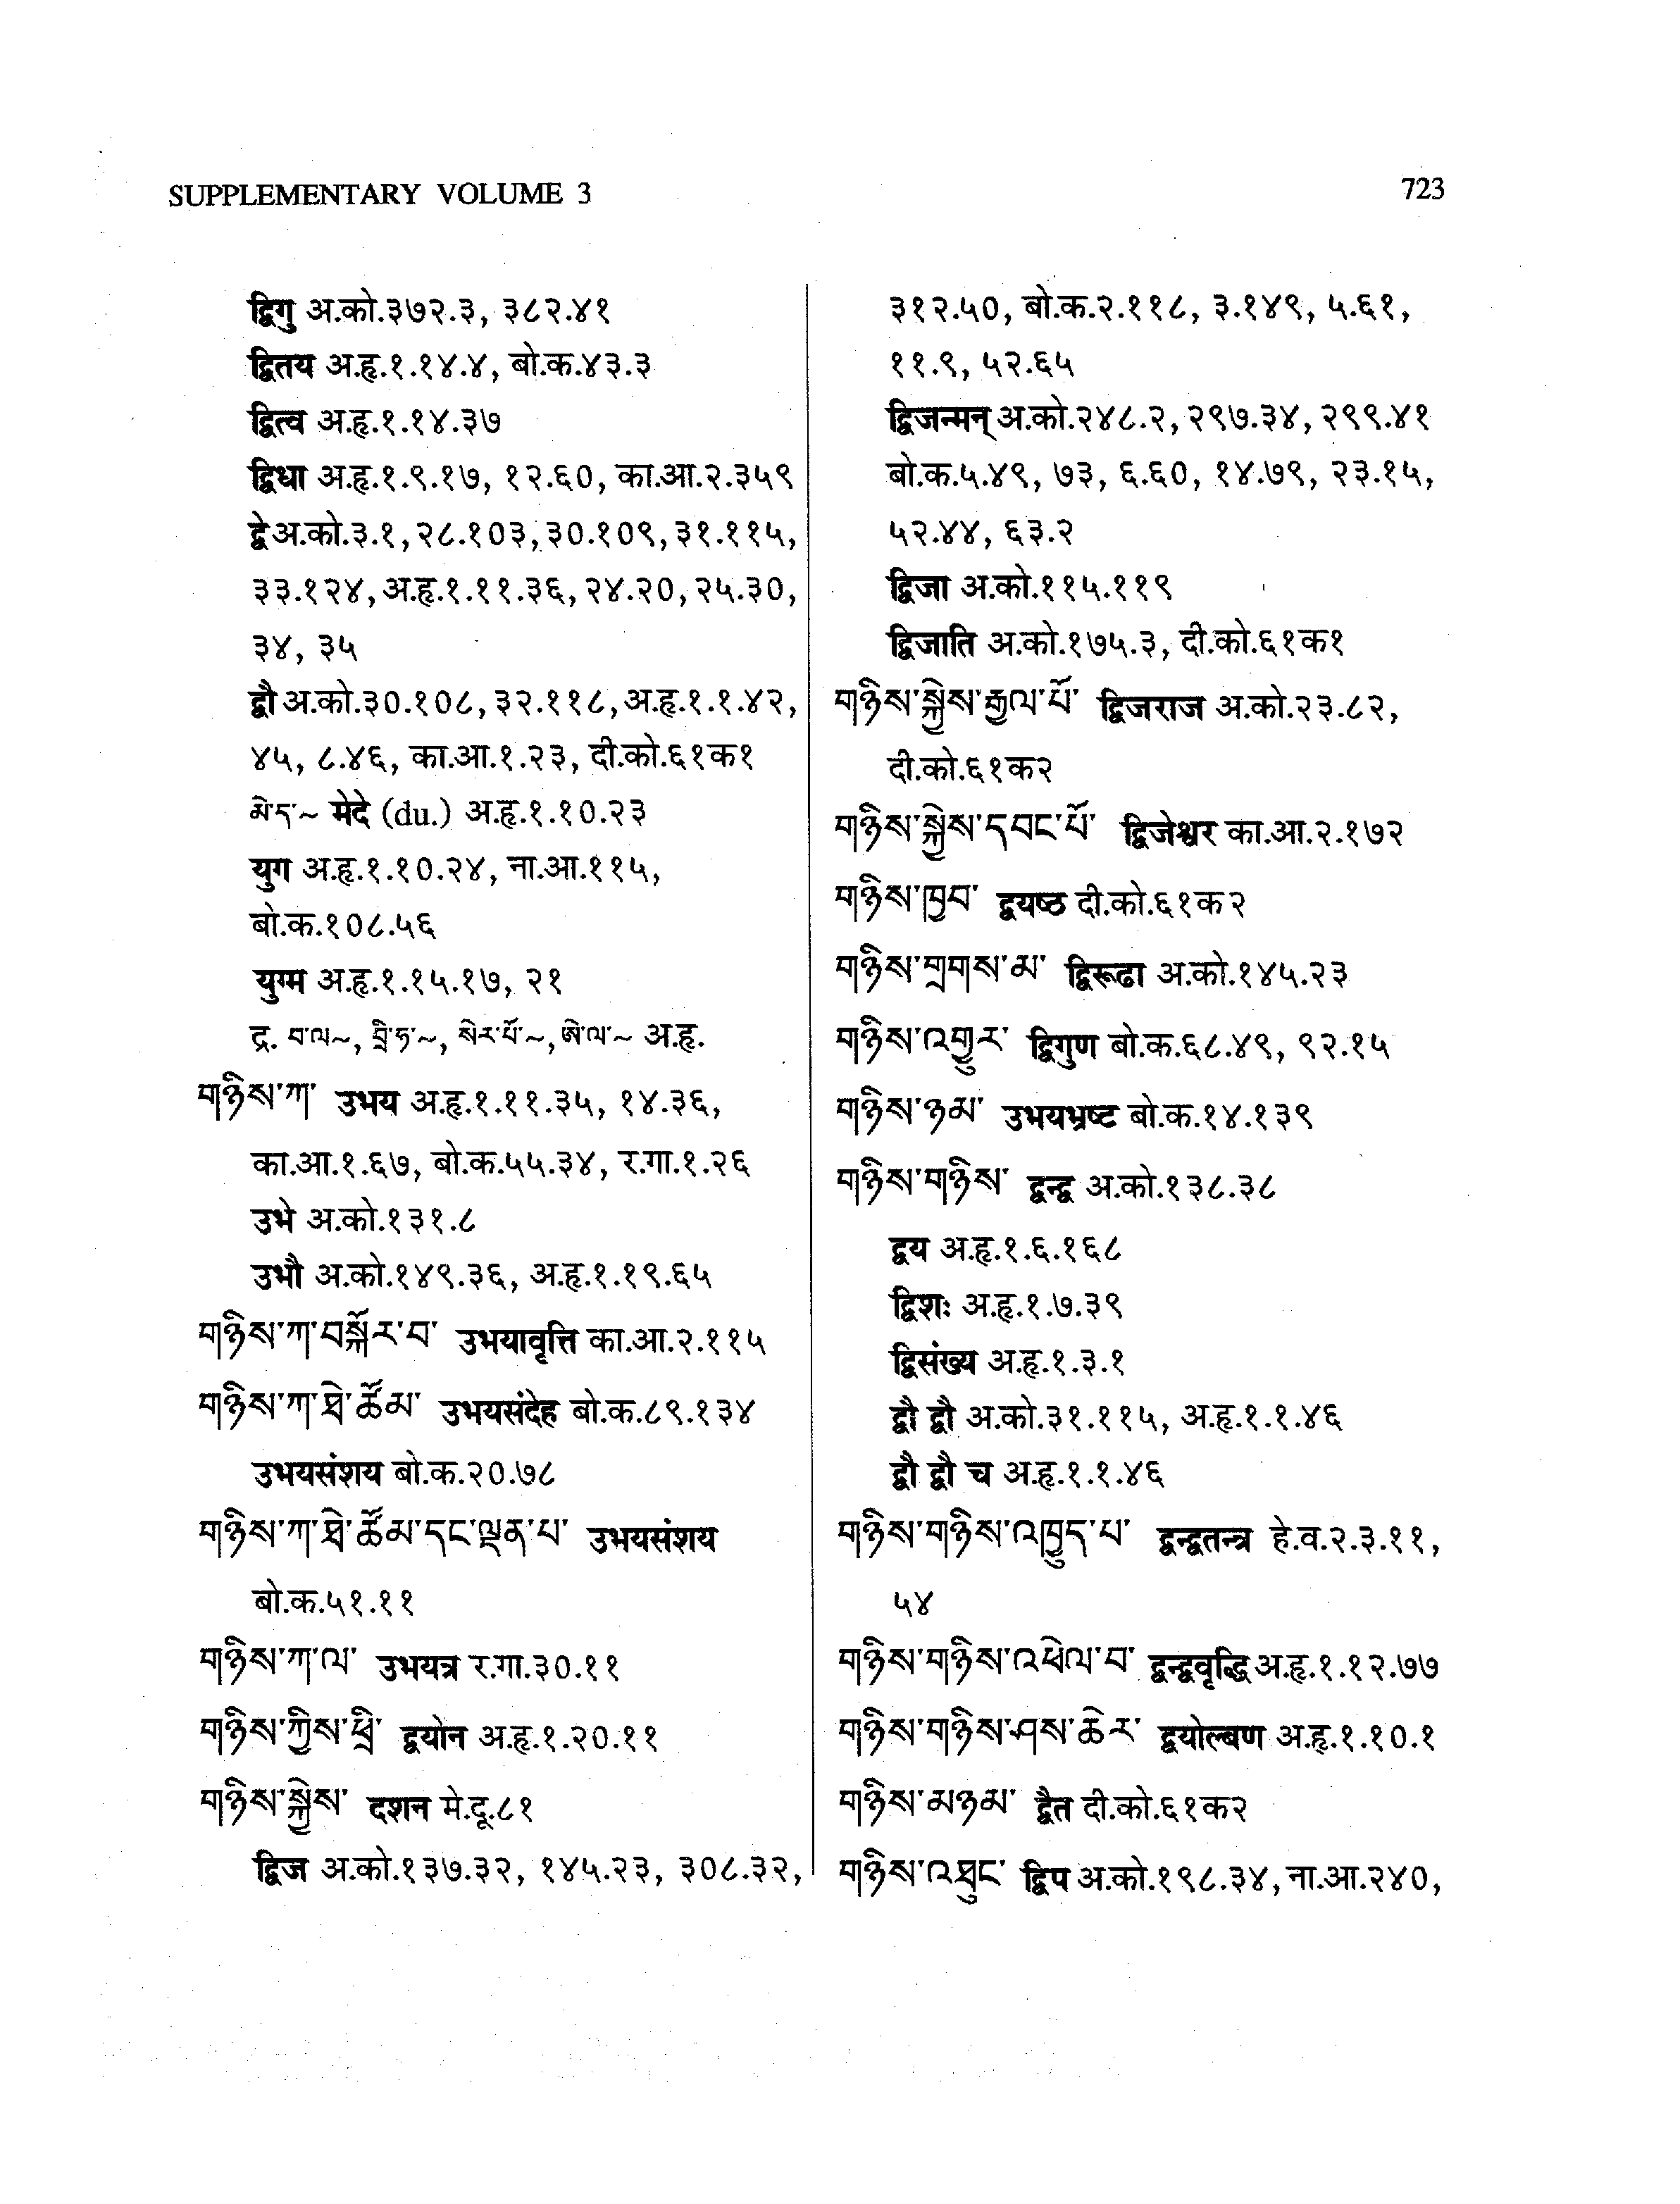 SUPPLEMENTARY VOLUME 3
723
द्विगु अ.को.३७२.३, ३८२.४१
द्वितय अ.हृ.१.१४.४, बो.क.४३.३
द्वित्व अ.हृ.१.१४.३७
द्विधा अ.हृ.१.९.१७, १२.६०, का.आ.२.३५९
द्वे अ.को.३.१, २८.१०३, ३०.१०९, ३१.११५,
३३.१२४, अ.हृ.१.११.३६, २४.२०, २५.३०,
३४, ३५
द्वौ अ.को.३०.१०८, ३२.११८, अ.हृ.१.१.४२,
४५, ८.४६, का.आ.१.२३, दी.को.६१क१
མེད་~ मेदे (du.) अ.हृ.१.१०.२३
युग अ.हृ.१.१०.२४, ना.आ.११५,
बो.क.१०८.५६
युग्म अ.हृ.१.१५.१७, २१
द्र. བ་ལ~, བྲི་ཧ་~, སེར་པོ་~, ཨེ་ལ་~ अ.हृ.
གཉིས་ཀ་ उभय अ.हृ.१.११.३५, १४.३६,
का.आ.१.६७, बो.क.५५.३४, र.गा.१.२६
उभे अ.को.१३१.८
उभौ अ.को.१४९.३६, अ.हृ.१.१९.६५
གཉིས་ཀ་བསྐོར་བ་ उभयावृत्ति का.आ.२.११५
གཉིས་ཀ་ཐེ་ཚོམ་ उभयसंदेह बो.क.८९.१३४
उभयसंशय बो.क.२०.७८
གཉིས་ཀ་ཐེ་ཚོམ་དང་ལྡན་པ་ उभयसंशय
बो.क.५१.११
གཉིས་ཀ་ལ་ उभयत्र र.गा.३०.११
གཉིས་ཀྱིས་ཕྲི་ द्वयोन अ.हृ.१.२०.११
གཉིས་སྐྱེས་ दशन मे.दू.८१
द्विज अ.को.१३७.३२, १४५.२३, ३०८.३२,
३१२.५०, बो.क.२.११८, ३.१४९, ५.६१,
११.९, ५२.६५
द्विजन्मन् अ.को.२४८.२, २९७.३४, २९९.४१
बो.क.५.४९, ७३, ६.६०, १४.७९, २३.१५,
५२.४४, ६३.२
द्विजा अ.को.११५.११९
द्विजाति अ.को.१७५.३, दी.को.६१क१
གཉིས་སྐྱེས་རྒྱལ་པོ་ द्विजराज अ.को.२३.८२,
दी.को.६१क२
གཉིས་སྐྱེས་དབང་པོ་ द्विजेश्वर का.आ.२.१७२
གཉིས་ཁྱབ་ द्वयष्ठ दी.को.६१क२
གཉིས་གྲགས་མ་ द्विरूढा अ.को.१४५.२३
གཉིས་འགྱུར་ द्विगुण बो.क.६८.४९, ९२.१५
གཉིས་ཉམ་ उभयभ्रष्ट बो.क.१४.१३९
གཉིས་གཉིས་ द्वन्द्व अ.को.१३८.३८
द्वय अ.हृ.१.६.१६८
द्विशः अ.हृ.१.७.३९
द्विसंख्य अ.हृ.१.३.१
द्वौ द्वौ अ.को.३१.११५, अ.हृ.१.१.४६
द्वौ द्वौ च अ.हृ.१.१.४६
གཉིས་གཉིས་འཁྱུད་པ་ द्वन्द्वतन्त्र हे.व.२.३.११,
५४
གཉིས་གཉིས་འཕེལ་བ་ द्वन्द्ववृद्धि अ.हृ.१.१२.७७
གཉིས་གཉིས་ཤས་ཆེར་ द्वयोल्बण अ.हृ.१.१०.१
གཉིས་མཉམ་ द्वैत दी.को.६१क२
གཉིས་འཐུང་ द्विप अ.को.१९८.३४, ना.आ.२४०,